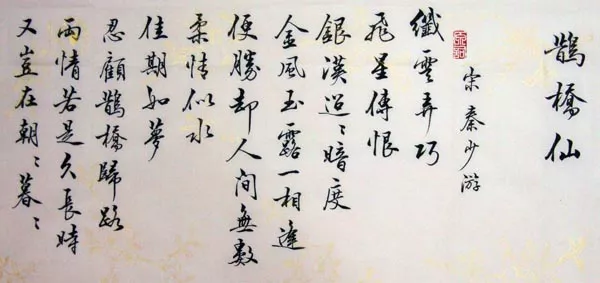 鵲橋仙
宋 秦少游
纖雲弄巧
飛星傳恨
銀漢迢〻暗度
金風玉露一相逢
便勝却人間無數
柔情似水
佳期如夢
忍顧鵲橋歸路
兩情若是久長時
又豈在朝〻暮〻